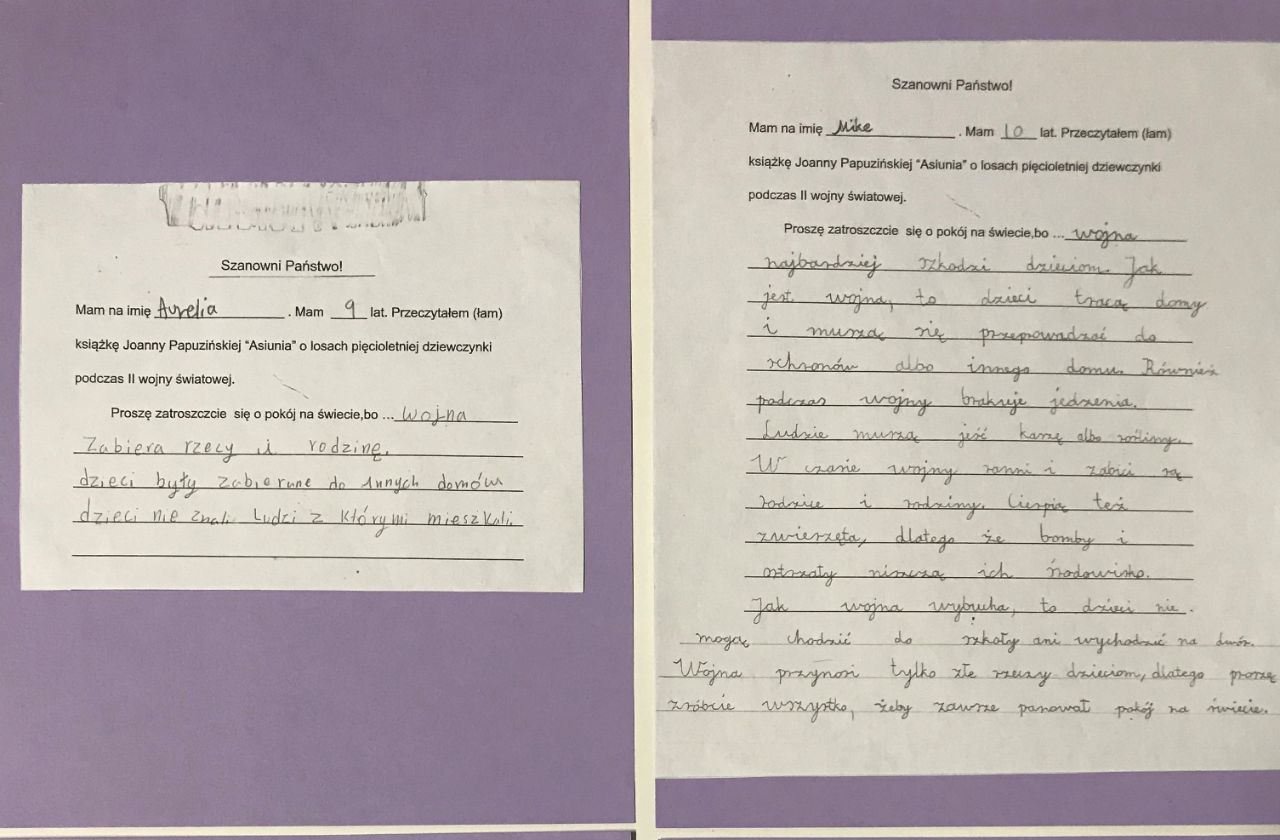 Szanowni Państwo!
Mam na imię Aurelia . Mam 9 lat. Przeczytałem (łam)
książkę Joanny Papuzińskiej "Asiunia" o losach pięcioletniej dziewczynki
podczas II wojny światowej.
Proszę zatroszczcie się o pokój na świecie,bo ... wojna
Zabiera rzecy i rodzinę.
dzieci były zabierane do innych domów
dzieci nie znali ludzi z którymi mieszkali.
Szanowni Państwo!
Mam na imię Mike . Mam 10 lat. Przeczytałem (łam)
książkę Joanny Papuzińskiej "Asiunia" o losach pięcioletniej dziewczynki
podczas II wojny światowej.
Proszę zatroszczcie się o pokój na świecie,bo ... wojna
najbardziej szkodzi dzieciom. Jak
jest wojna, to dzieci tracą domy
i muszą się przeprowadzać do
schronów albo innego domu. Również
podczas wojny brakuje jedzenia.
Ludzie muszą jeść karzę albo rośliny.
W czasie wojny ranni i zabici są
rodzice i rodziny. Cierpią też
zwierzęta, dlatego że bomby i
ostrzały niszczą ich środowisko.
Jak wojna wybucha, to dzieci nie
mogą chodzić do szkoły ani wychodzić na dwór.
Wojna przynosi tylko złe rzeczy dzieciom, dlatego proszę
zróbcie wszystko, żeby zawsze panował pokój na świecie.